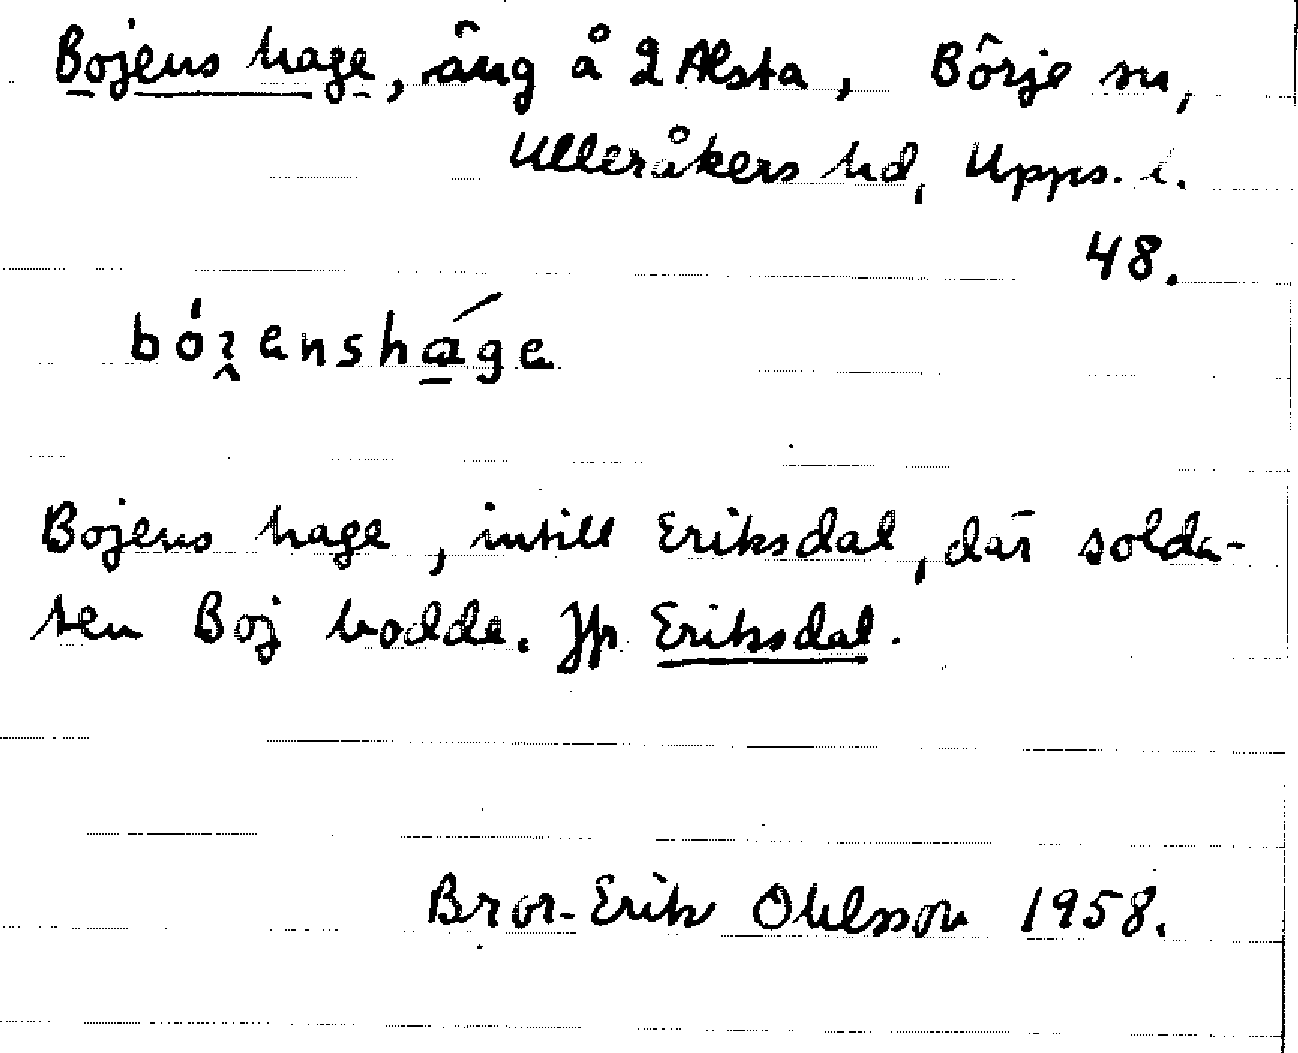 Bojens hage, äng å 2 Alsta, Börje sn,
Ulleråkers hd, Upps. l.
48.
Bojens hage, intill Eriksdal, där solda-
ten Boj bodde. Jfr Eriksdal.
Bror-Erik Ohlsson 1958.